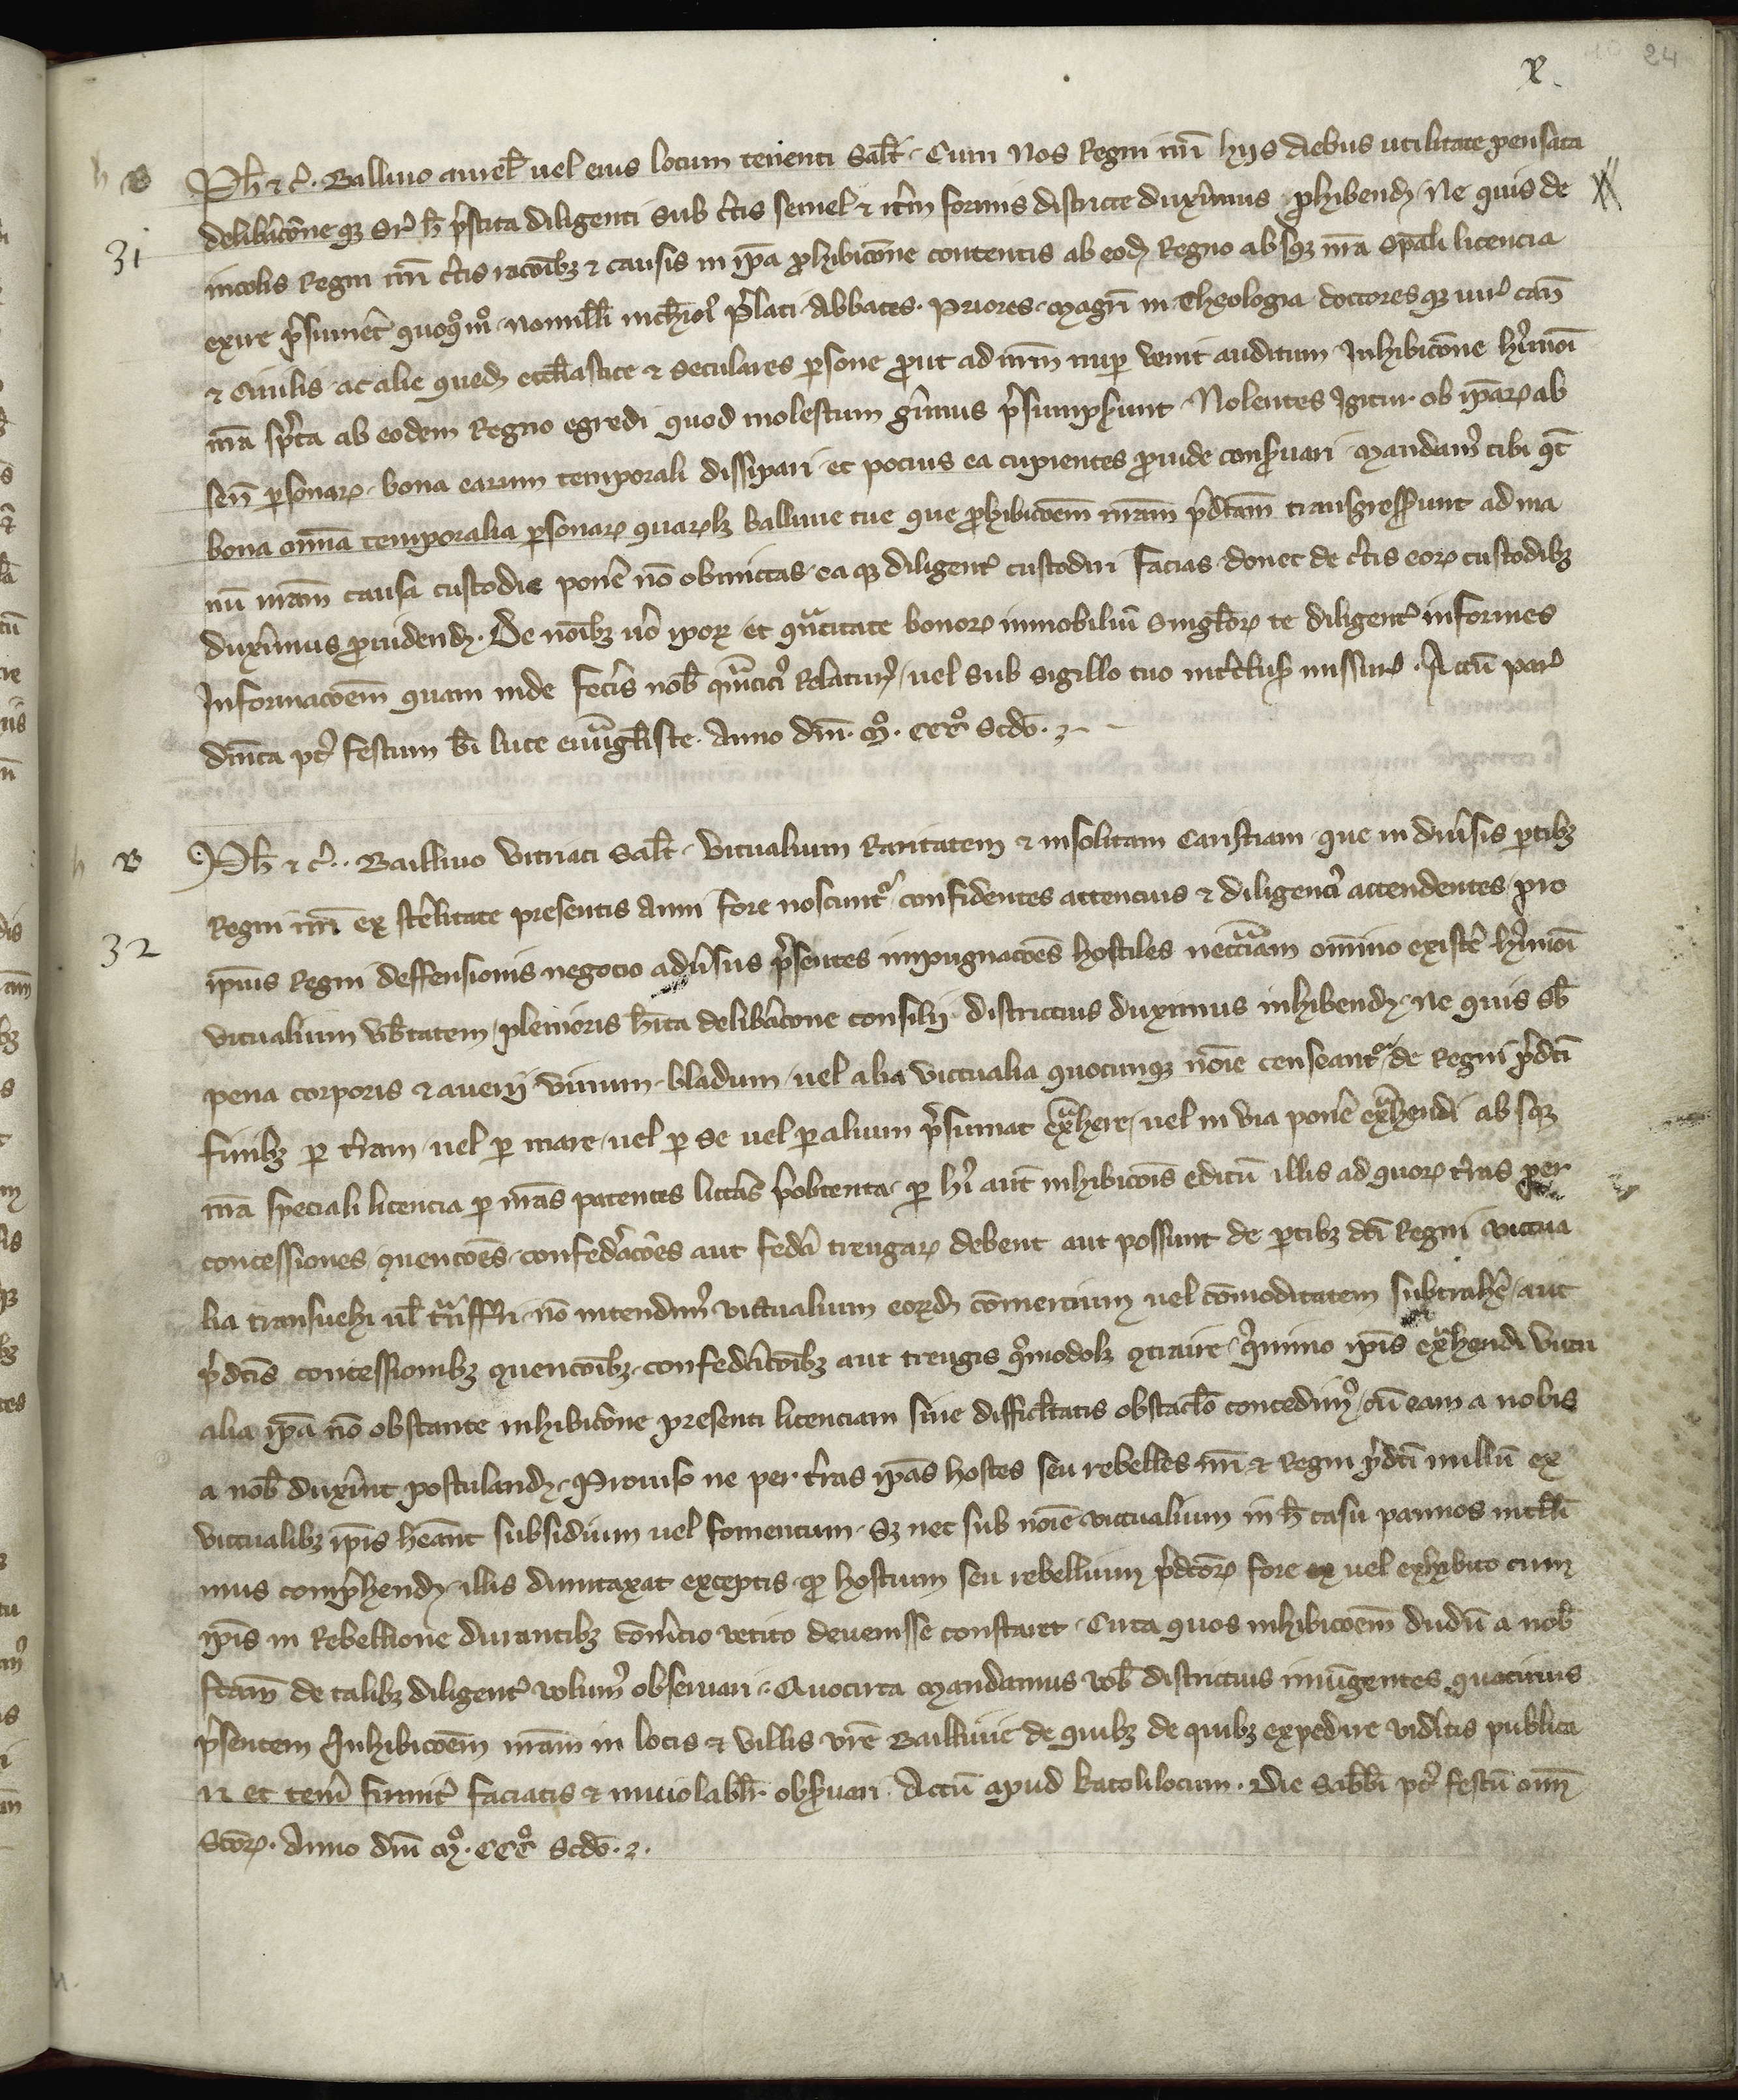 x
10 24
h B
Ph̄ ⁊ c̃. Balliuo aurel̃ uel eius locum tenenti Salt̃. Cum Nos Regni nr̄i hijs diebus utilitate pensata
delib̃ac̄oneqꝫ sr̃ h̄ p̃stita diligenti sub c̃tis semel ⁊ it̃m formis districte dux̃imus ꝓhibendꝫ Ne quis de
31
incolis Regni nr̄i c̃tis rac̄onibꝫ ⁊ causis in ip̄a ꝓhibic̄one contentis ab eodꝫ Regno absqꝫ nr̄a sp̄ali licencia
exire p̃sumet̃ quoqͦmͦ. Nonnull̄i nich̄iol̃ p̃lati Abbates. Priores. Magr̄i in Theologia doctoresqꝫ iur̃ can̄
⁊ Ciuilis ac alie quedꝫ eccl̄iastice ⁊ seculares ꝑsone ꝓut ad nr̄m nuꝑ venit auditum Inhibic̄one hm̃oi
nr̄a sp̃ta ab eodem Regno egredi quod molestum gim̃us p̃sumps̃unt. Nolentes igitur ob ip̄aꝝ ab
sen̄ ꝑsonaꝝ. bona earum temporali dissipari et pocius ea cupientes ꝓinde cons̃uari Mandam̃ tibi qt̃
bona om̄ia temporalia ꝑsonaꝝ quaꝝlꝫ balliuie tue que ꝓhibic̄oem nr̄am p̃dc̄am transgresse sunt ad ma
nū nr̄am causa custodie pon̄e nō obmittas. eaqꝫ diligent̃ custodiri facias. donec de c̃tis eoꝝ custodibꝫ
dux̃imus ꝓuidendꝫ. De noībꝫ u̅o ip̄oꝝ et qᵃntitate bonoꝝ inmobiliū singl̄oꝝ te diligent̃ informes
Informac̄oem quam inde fec̃is nob̄ relatur̃ / uel sub sigillo tuo int̃clus̃ missur̃. Actū par̃
dn̄ica pt̃ festum b̄i luce euuᵃngl̄iste. Anno dn̄i. Mͦ. CCCͦ scdō.
h B
Ph̄ ⁊ c̃. Balliuo Vitriaci Salt̃. Victualium Raritatem ⁊ insolitam caristiam que in diũsis ꝑtibꝫ
Regni nr̄i ex st̃ilitate presentis anni fore noscunt̃ confidentes attencius ⁊ diligenc̃ attendentes / pro
32
ip̄ius Regni deffensionis negocio adũsus p̃sentes impugnac̄oes hostiles necc̄iam om̄ino exist̃e hm̃oi
victualium vb̃tatem / plenioris h̄ita delib̃ac̄one consilij districtius duximus inhibendꝫ. Ne quis sb̄
pena corporis ⁊ aueri vinum. bladum / uel alia victualia quocunqꝫ noīe censeant̃ de Regni p̃dc̄i
finibꝫ ꝑ t̃ram uel ꝑ mare / uel ꝑ se uel ꝑ alium p̃sumat exᵃhere / uel in via pon̄e exᵃhendi absqꝫ
nr̄a speciali licencia ꝑ nr̄as patentes litt̃as p̃obtenta. ꝑ hi̅ aut̄ inhibic̄ois edictū illis ad quoꝝ t̃ras per
concessiones ꝯuenc̄oes. confedẽac̄oes aut fed̃a treugaꝝ debent aut possunt de ꝑtibꝫ dc̄i Regni victua
lia transuehi ul̄ nō intendim̃ victualium eoꝝdꝫ cōmercium uel cōmoditatem subtrah̃e / aut
p̃dc̄is concessionibꝫ ꝯuenc̄oibꝫ. confedẽac̄oibꝫ aut treugis qͦmodolꝫ ꝯtraire. qͥnimo ip̄is exᵃhendi victu
alia ip̄a nō obstante inhibic̄one presenti licenciam sine difficl̄tatis obstacl̄o concedim̃ / cū eam a nobis
a nob̄ dux̃int postulandꝫ. Prouiso ne per t̃ras ip̄as hostes seu rebelles nr̄i ⁊ Regni p̃dc̄i nullū ex
victualibꝫ ip̄is heant̄ subsidium uel fomentum. Sꝫ nec sub noīe victualium in h̄ casu pannos intelli
mus comp̃hendꝫ. illis dumtaxat exceptis. ꝙ hostium seu rebellium p̃dc̄oꝝ fore ex uel exhibito cum
ip̄is in Rebellione durantibꝫ cōm̃cio vetito deuenisse constaret. Circa quos inhibic̄oem dudū a nob̄
fc̄am de talibꝫ diligent̃ volum̃ obseruari. Quocirca mandamus vob̄ districtius iniūgentes quatinus
p̃sentem Inhibic̄oem nr̄am in locis ⁊ villis vr̄e Balliuie de quibꝫ de quibꝫ expedire vid̃itis publica
ri et ten̄i firmit̃ faciatis ⁊ inuiolabil̄r obs̃uari. Actū apud Katolilocum. Die Sab̄bi pt̃ festū om̄
Sc̄oꝝ. Anno dn̄i Mͦ. CCCͦ scdō.